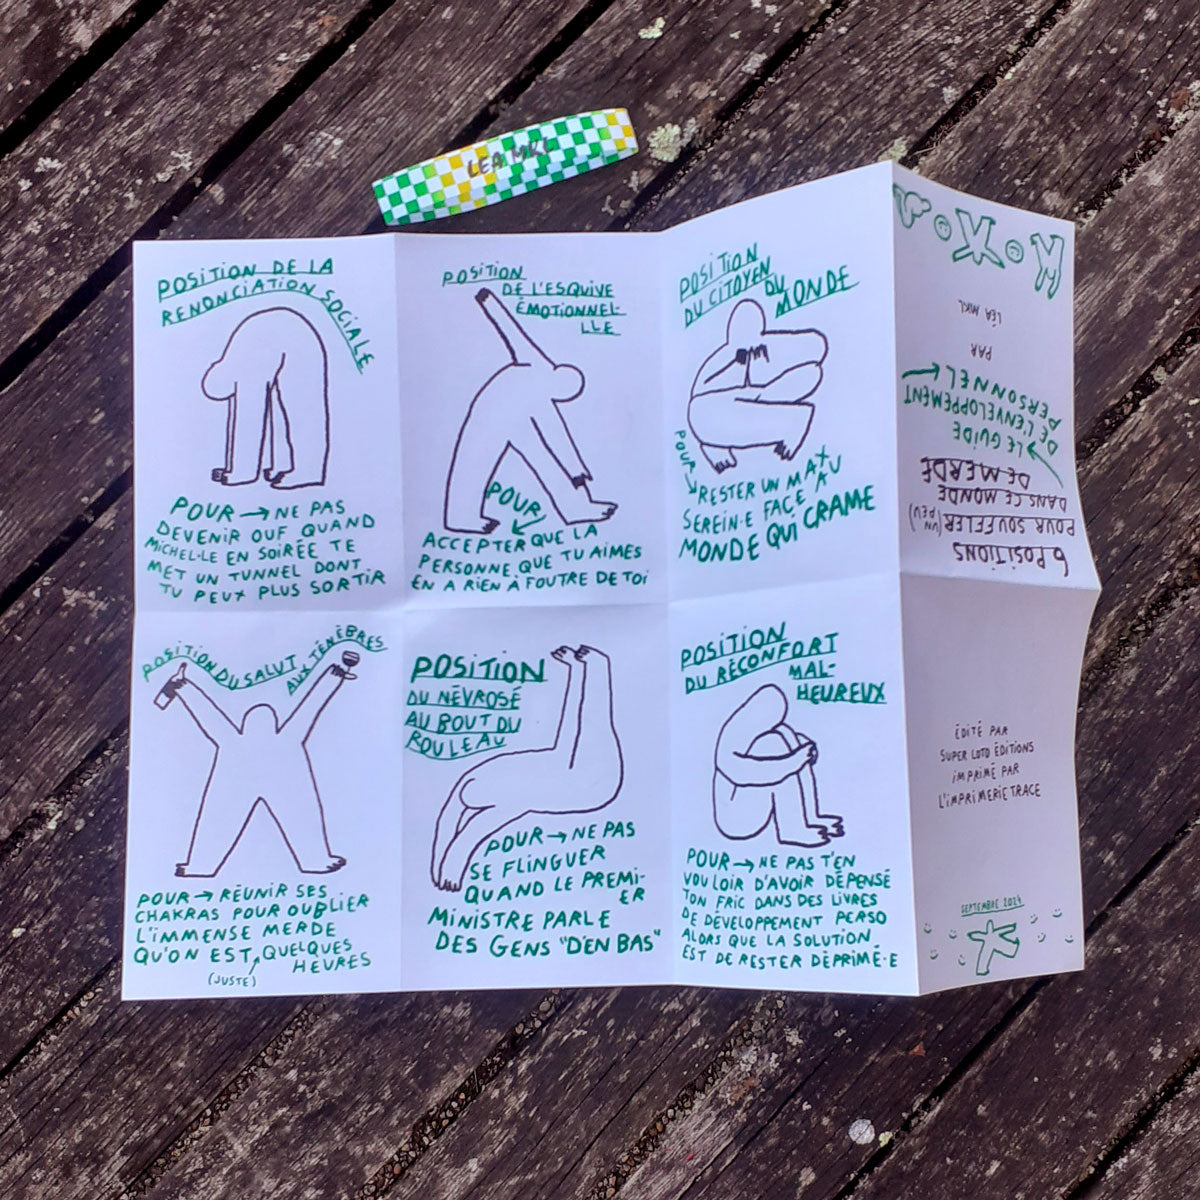 LEA MKL
POSITION DE LA
RENONCIATION SOCIALE
POUR → NE PAS
DEVENIR OUF QUAND
MICHEL·LE EN SOIRÉE TE
MET UN TUNNEL DONT
TU PEUX PLUS SORTIR
POSITION
DE L'ESQUIVE
ÉMOTIONNEL-
LLE
POUR
ACCEPTER QUE LA
PERSONNE QUE TU AIMES
EN A RIEN À FOUTRE DE TOI
POSITION
DU CITOYEN
DU
MONDE
POUR
RESTER UN MAX
SEREIN·E FACE AU
MONDE QUI CRAME
POSITION DU SALUT
AUX TÉNÈBRES
POUR → RÉUNIR SES
CHAKRAS POUR OUBLIER
L'IMMENSE MERDE
QU'ON EST, QUELQUES
HEURES
(JUSTE)
POSITION
DU NÉVROSÉ
AU BOUT DU
ROULEAU
POUR → NE PAS
SE FLINGUER
QUAND LE PREMI-
ER
MINISTRE PARLE
DES GENS "D'EN BAS"
POSITION
DU RÉCONFORT
MAL-
HEUREUX
POUR → NE PAS T'EN
VOULOIR D'AVOIR DÉPENSÉ
TON FRIC DANS DES LIVRES
DE DÉVELOPPEMENT PERSO
ALORS QUE LA SOLUTION
EST DE RESTER DÉPRIMÉ·E
6 POSITIONS
POUR SOUFFLER (UN PEU)
DANS CE MONDE
DE MERDE
LE GUIDE
DE L'ENVELOPPEMENT
PERSONNEL
PAR
LÉA MKL
ÉDITÉ PAR
SUPER LOTO ÉDITIONS
IMPRIMÉ PAR
L'IMPRIMERIE TRACE
SEPTEMBRE 2024